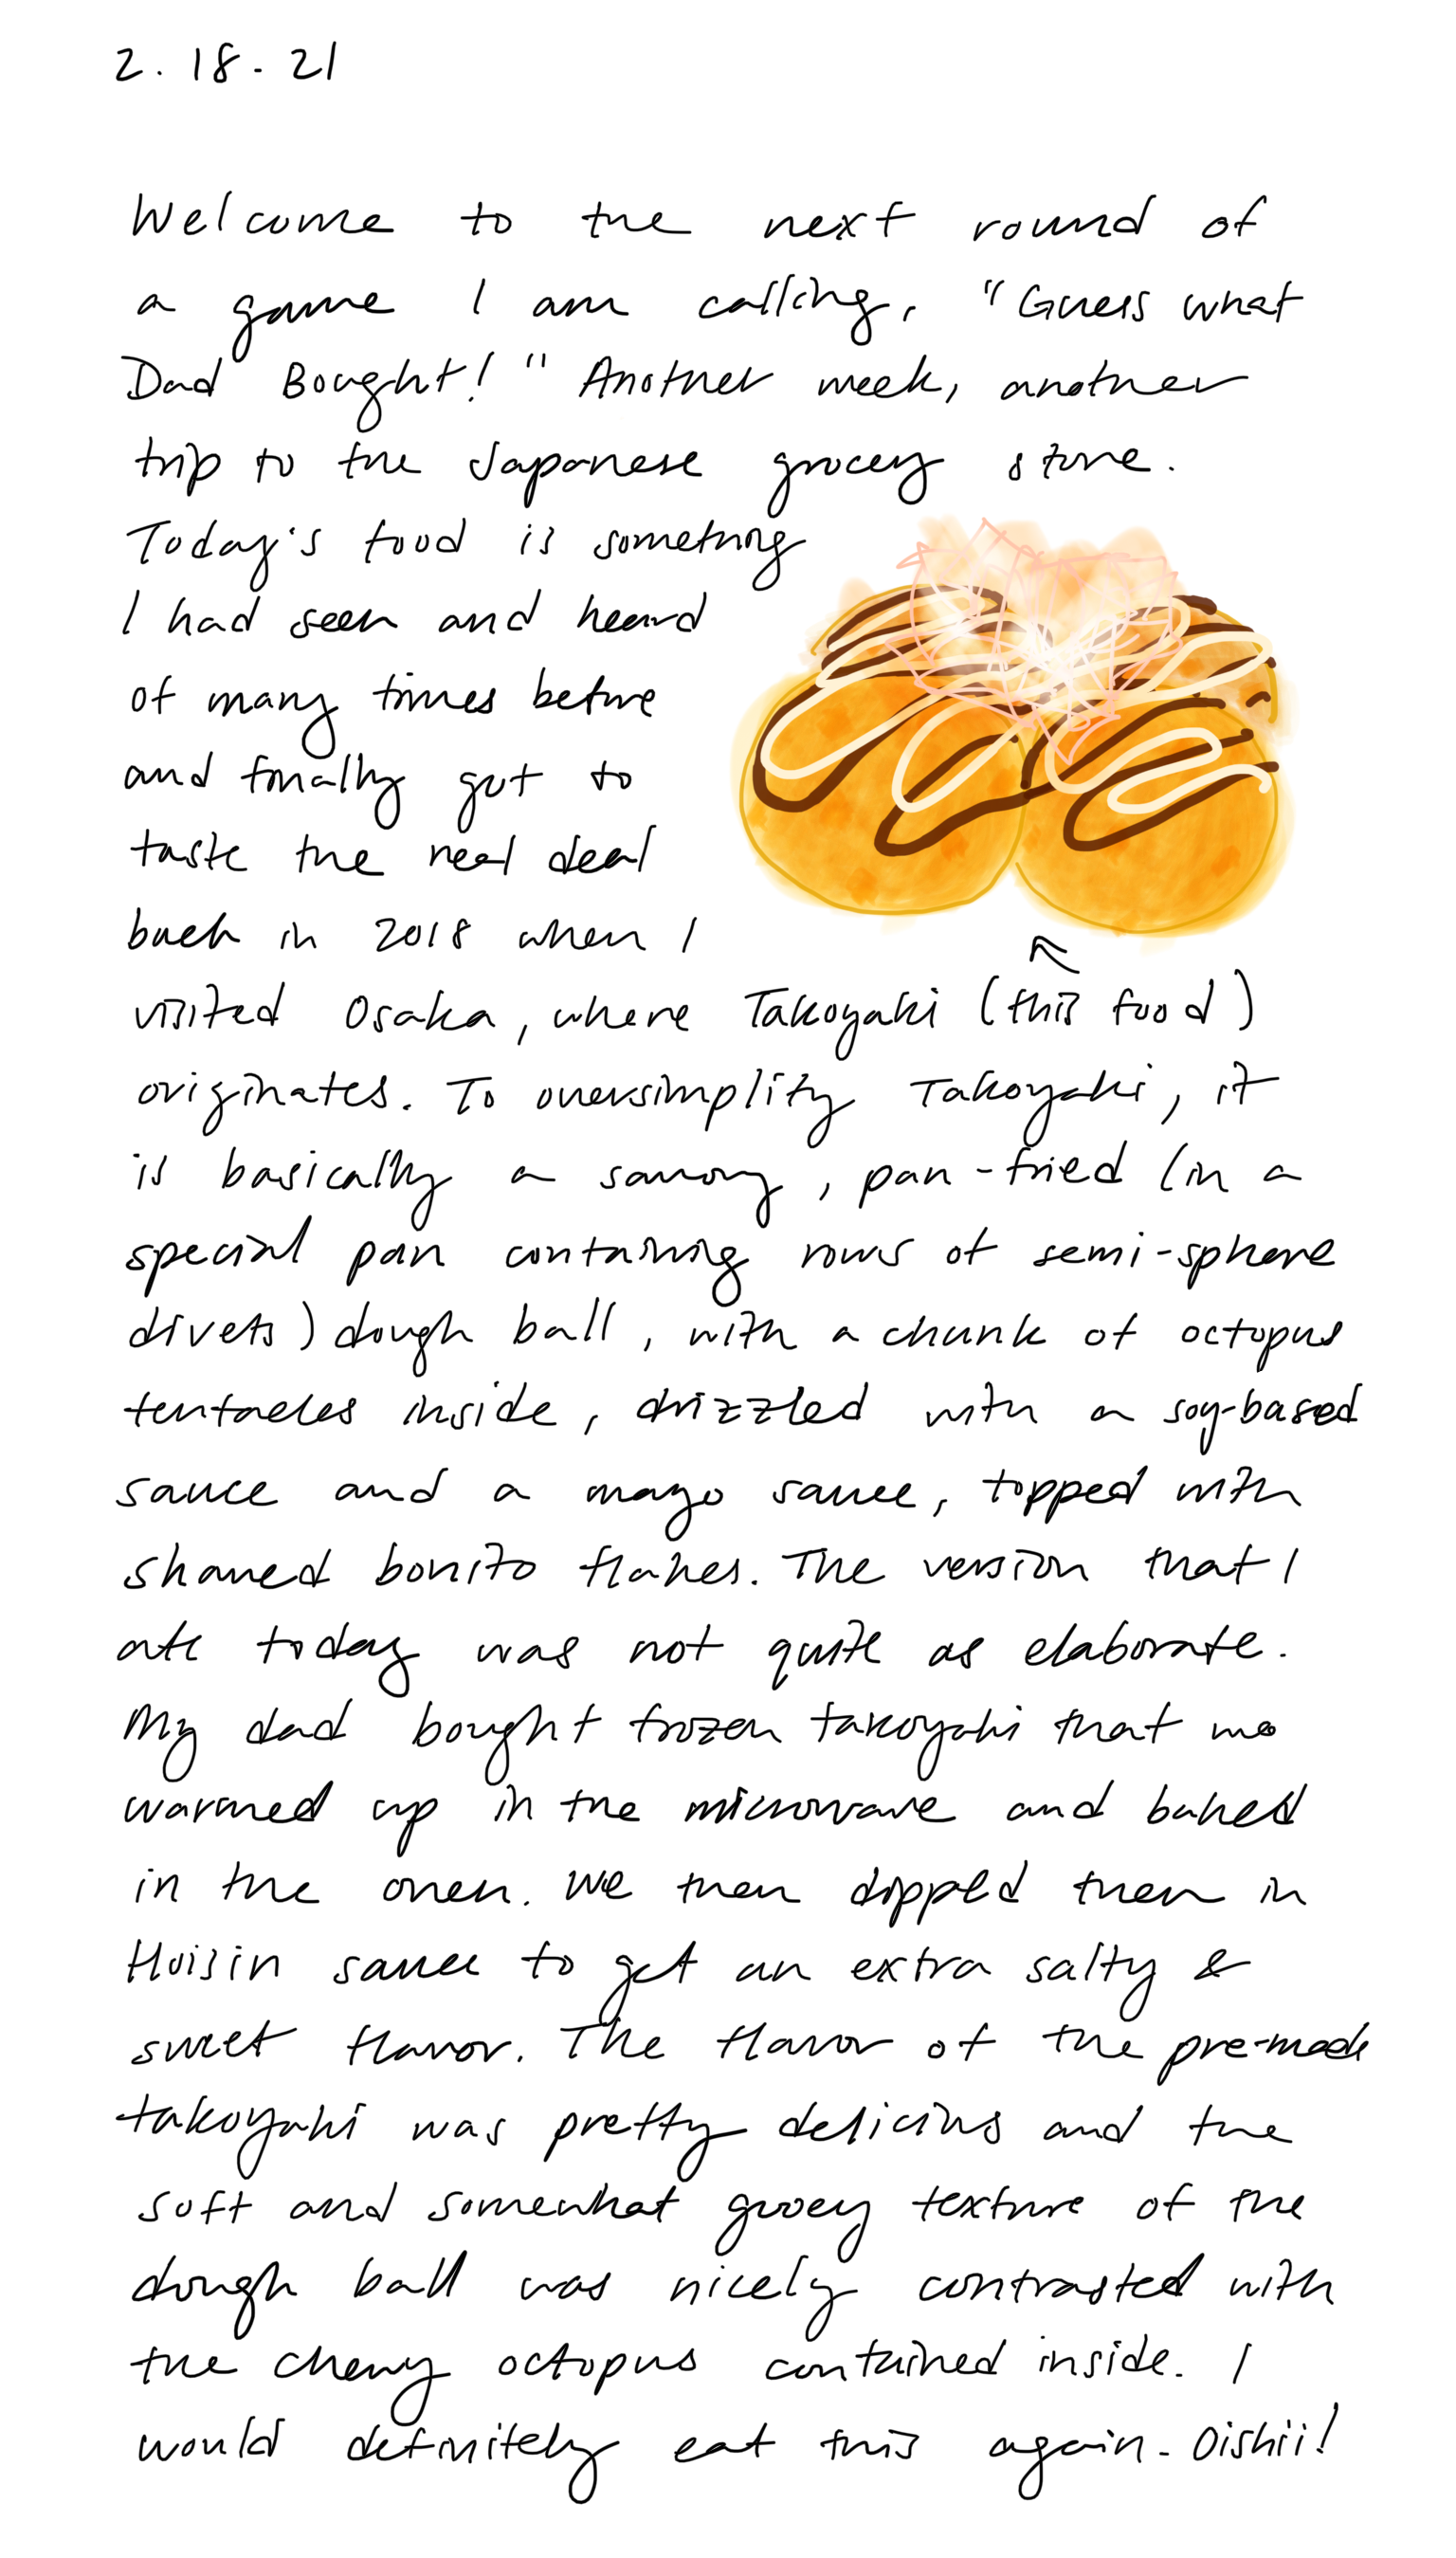 2.18.21
Welcome to the next round of
a game I am calling, "Guess what
Dad Bought!" Another week, another
trip to the Japanese grocery store.
Today's food is something
I had seen and heard
of many times before
and finally got to
taste the real deal
back in 2018 when I
visited Osaka, where Takoyaki (this food)
originates. To oversimplify Takoyaki, it
is basically a savory, pan-fried (in a
special pan containing rows of semi-sphere
divets) dough ball, with a chunk of octopus
tentacles inside, drizzled with a soy-based
sauce and a mayo sauce, topped with
shaved bonito flakes. The version that I
ate today was not quite as elaborate.
My dad bought frozen takoyaki that we
warmed up in the microwave and baked
in the oven. We then dipped them in
Hoisin sauce to get an extra salty &
sweet flavor. The flavor of the pre-made
takoyaki was pretty delicious and the
soft and somewhat gooey texture of the
dough ball was nicely contrasted with
the chewy octopus contained inside. I
would definitely eat this again. Oishii!